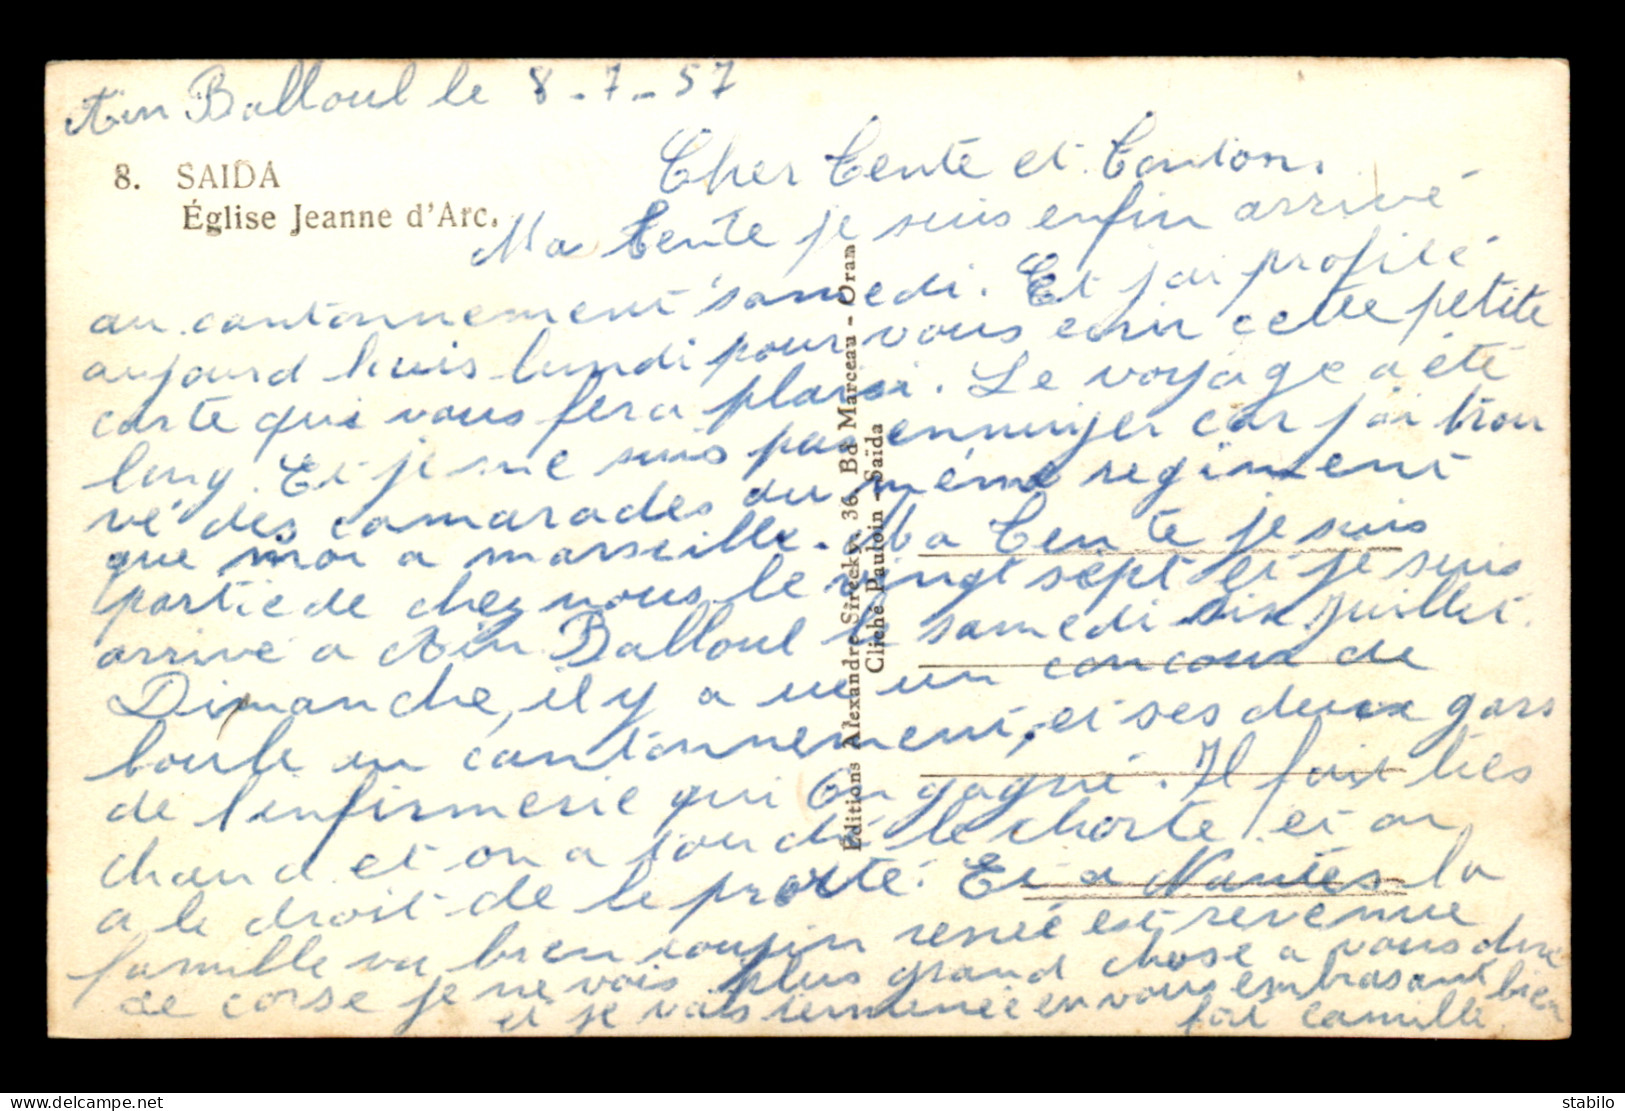 Ain Balloul le 8-7-57
8. SAIDA
Église Jeanne d'Arc.
Cher tente et tonton.
Ma tente je suis enfin arrivé
au cantonnement samedi. Et j'ai profité
aujourd huis lundi pour vous ecrir cette petite
carte qui vous fera plaisi. Le voyage a été
long. Et je me suis pas ennuyer car j'ai trou
vé des camarades du même regiment
que moi a marseille. Ma tente je suis
partie de chez nous le vingt sept et je suis
arrive a Ain Balloul le samedi six Juillet.
Dimanche, il y a ue un concour de
boule au cantonnement, et ses deux gars
de l'enfirmerie qui on gagné. Il fait tres
chaud et on a touché le chorte et on
a le droit de le porté. Et a Nantes la
famille va bien cousin renée est revenue
de corse je ne vois plus grand chose a vous dire
et je vais terminée en vous embrasant bien
fort camille
Editions Alexandre Sirecky, 36, Bd Marceau - Oran
Cliché Pauloin - Saïda
stabilo
www.delcampe.net